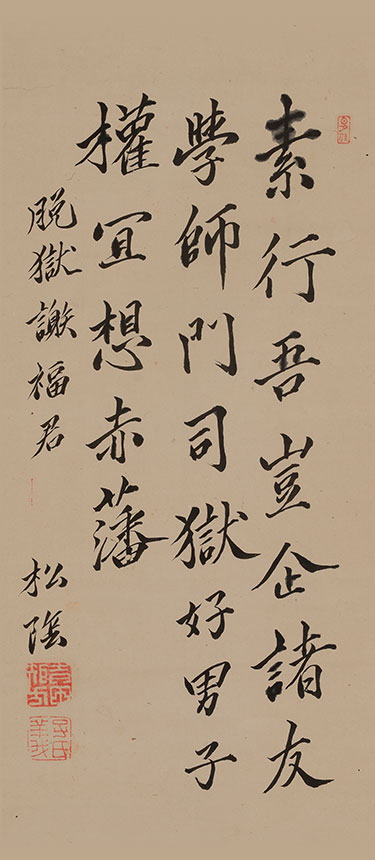 素行吾豈企諸友
學師門司獄好男子
權宜想赤藩
脫獄謝福君
松陰